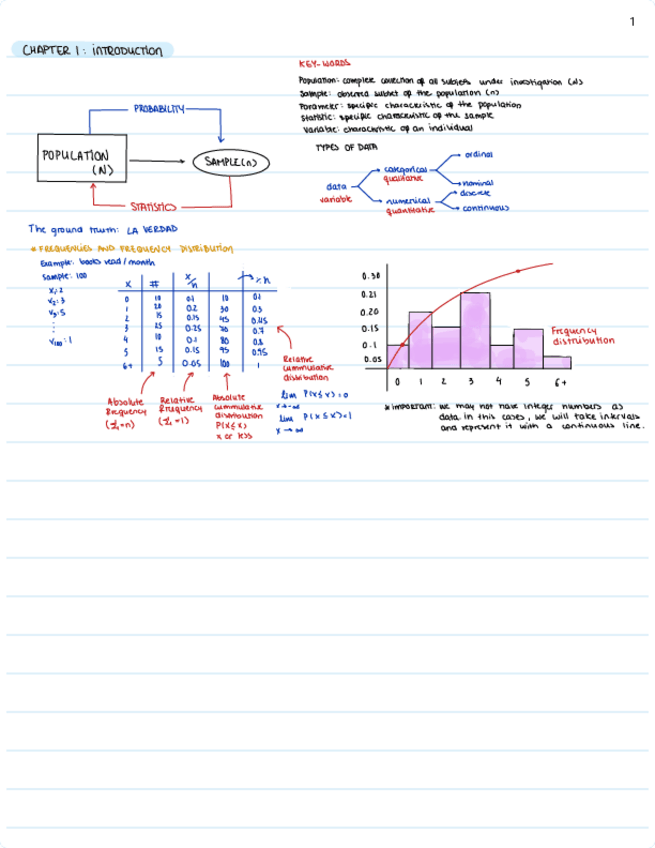 1
CHAPTER 1: INTRODUCTION
KEY-WORDS
Population: complete collection of all subjects under investigation (N)
Sample: observed subset of the population (n)
Parameter: specific characteristic of the population
Statistic: specific characteristic of the sample
Variable: characteristic of an individual
PROBABILITY
POPULATION
(N)
SAMPLE (n)
STATISTICS
TYPES OF DATA
data
variable
categorical
qualitative
ordinal
nominal
numerical
quantitative
discrete
continuous
The ground truth: LA VERDAD
* FREQUENCIES AND FREQUENCY DISTRIBUTION
Example: books read / month
Sample: 100
x₁: 2
v₂: 3
v₃: 5
:
v₁₀₀: 1
x # x/n → x n
0 10 0.1 10 0.1
1 20 0.2 30 0.3
2 15 0.15 45 0.45
3 25 0.25 70 0.7
4 10 0.1 80 0.8
5 15 0.15 95 0.95
6+ 5 0.05 100 1
Absolute
frequency
(Σ=n)
Relative
frequency
(Σ=1)
Absolute
cummulative
distribution
P(X≤x)
x or less
Relative
cummulative
distribution
lim P(X≤x)=0
x→-∞
lim P(X≤x)=1
x→∞
0.30
0.21
0.20
0.15
0.1
0.05
0 1 2 3 4 5 6+
Frequency
distribution
* important: we may not have integer numbers as
data. in this cases, we will take intervals
and represent it with a continuous line.